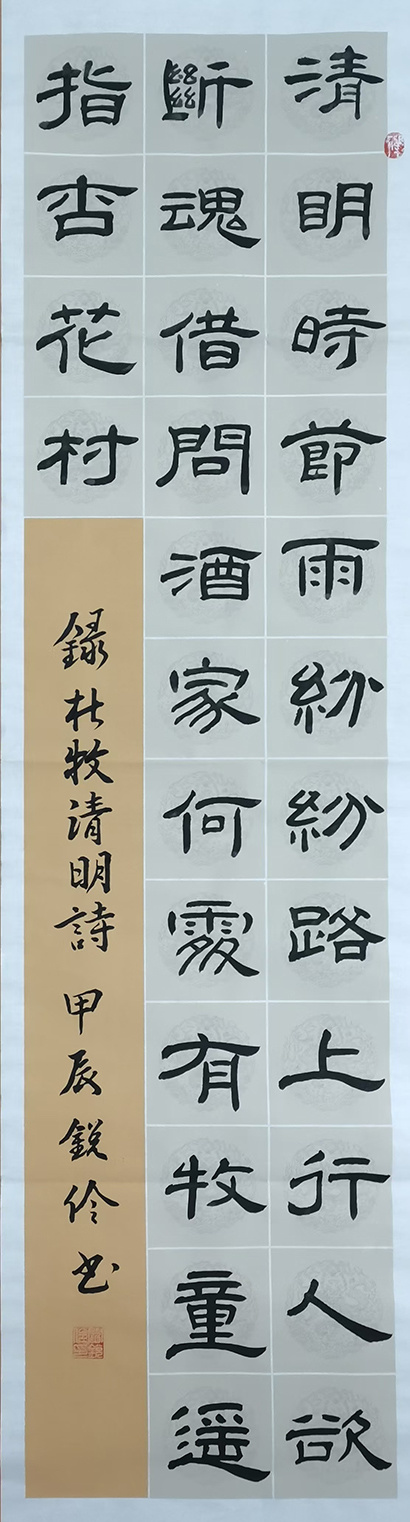 清明時節雨紛紛路上行人欲
斷魂借問酒家何處有牧童遥
指杏花村
錄杜牧清明詩 甲辰銳伶书